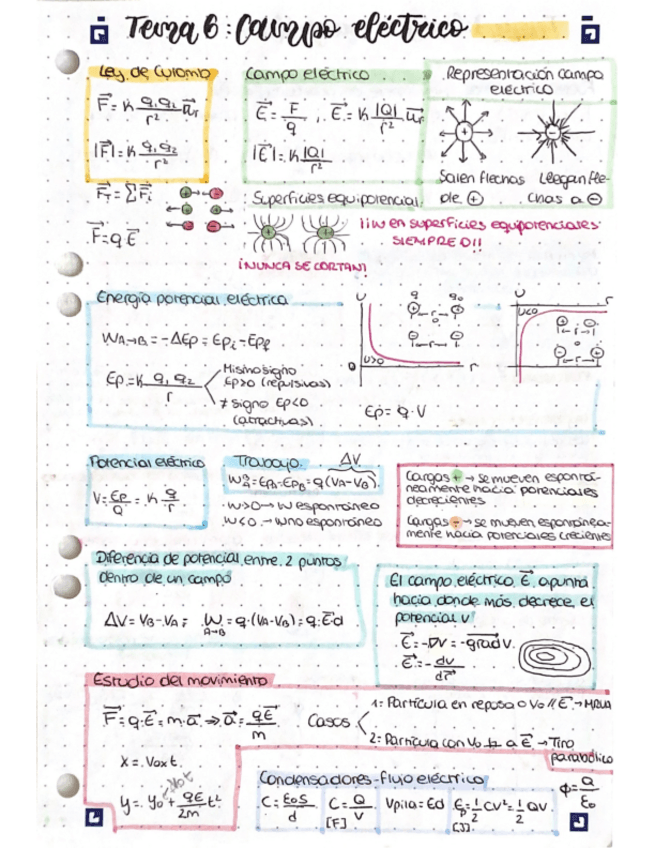 Tema 6: Campo eléctrico
Ley de Culomb
F⃗ = K q₁q₂/r² u⃗r
|F⃗| = K q₁q₂/r²
F⃗T = ΣF⃗i
F⃗ = q E⃗
Campo eléctrico
E⃗ = F⃗/q ; E⃗ = K |Q|/r² u⃗r
|E⃗| = K |Q|/r²
Superficies equipotencial
¡NUNCA SE CORTAN!
¡¡W en superficies equipotenciales
SIEMPRE 0!!
Representación campo
eléctrico
Salen flechas
de ⊕
Llegan fle-
chas a ⊖
Energía potencial eléctrica
W A→B = -ΔEp = Epi - Epf
Ep = K q₁ q₂/r
Mismo signo
Ep>0 (repulsivas)
≠ signo Ep<0
(atractivas)
U
U>0
0
r
q q₀
r
0
r
Ep = q·V
U
r
U<0
r
0
r
Potencial eléctrico
V = Ep/Q = K q/r
Trabajo
ΔV
W = EpA - EpB = q(VA-VB)
W>0 → W espontáneo
W<0 → W no espontáneo
Cargas + → se mueven espontá-
neamente hacia potenciales
decrecientes
Cargas - → se mueven espontánea-
mente hacia potenciales crecientes
Diferencia de potencial entre 2 puntos
dentro de un campo
ΔV = VB - VA ; W A→B = q·(VA-VB) = q·E⃗·d
El campo eléctrico, E⃗, apunta
hacia donde más decrece el
potencial V
E⃗ = -∇V = -grad V
E⃗ = - dV/dr⃗
Estudio del movimiento
F⃗ = q·E⃗ = m·a⃗ ⇒ a⃗ = qE⃗/m
Casos
1: Partícula en reposo o V₀ // E⃗ → MRUA
2: Partícula con V₀ ⊥ a E⃗ → Tiro
parabólico
x = V₀x t
y = y₀ + V₀t + qE/2m t²
Condensadores - flujo eléctrico
C = ε₀S/d
C = Q/V
[F]
Vpila = Ed
Ep = 1/2 CV² = 1/2 QV
[J]
ϕ = Q/ε₀